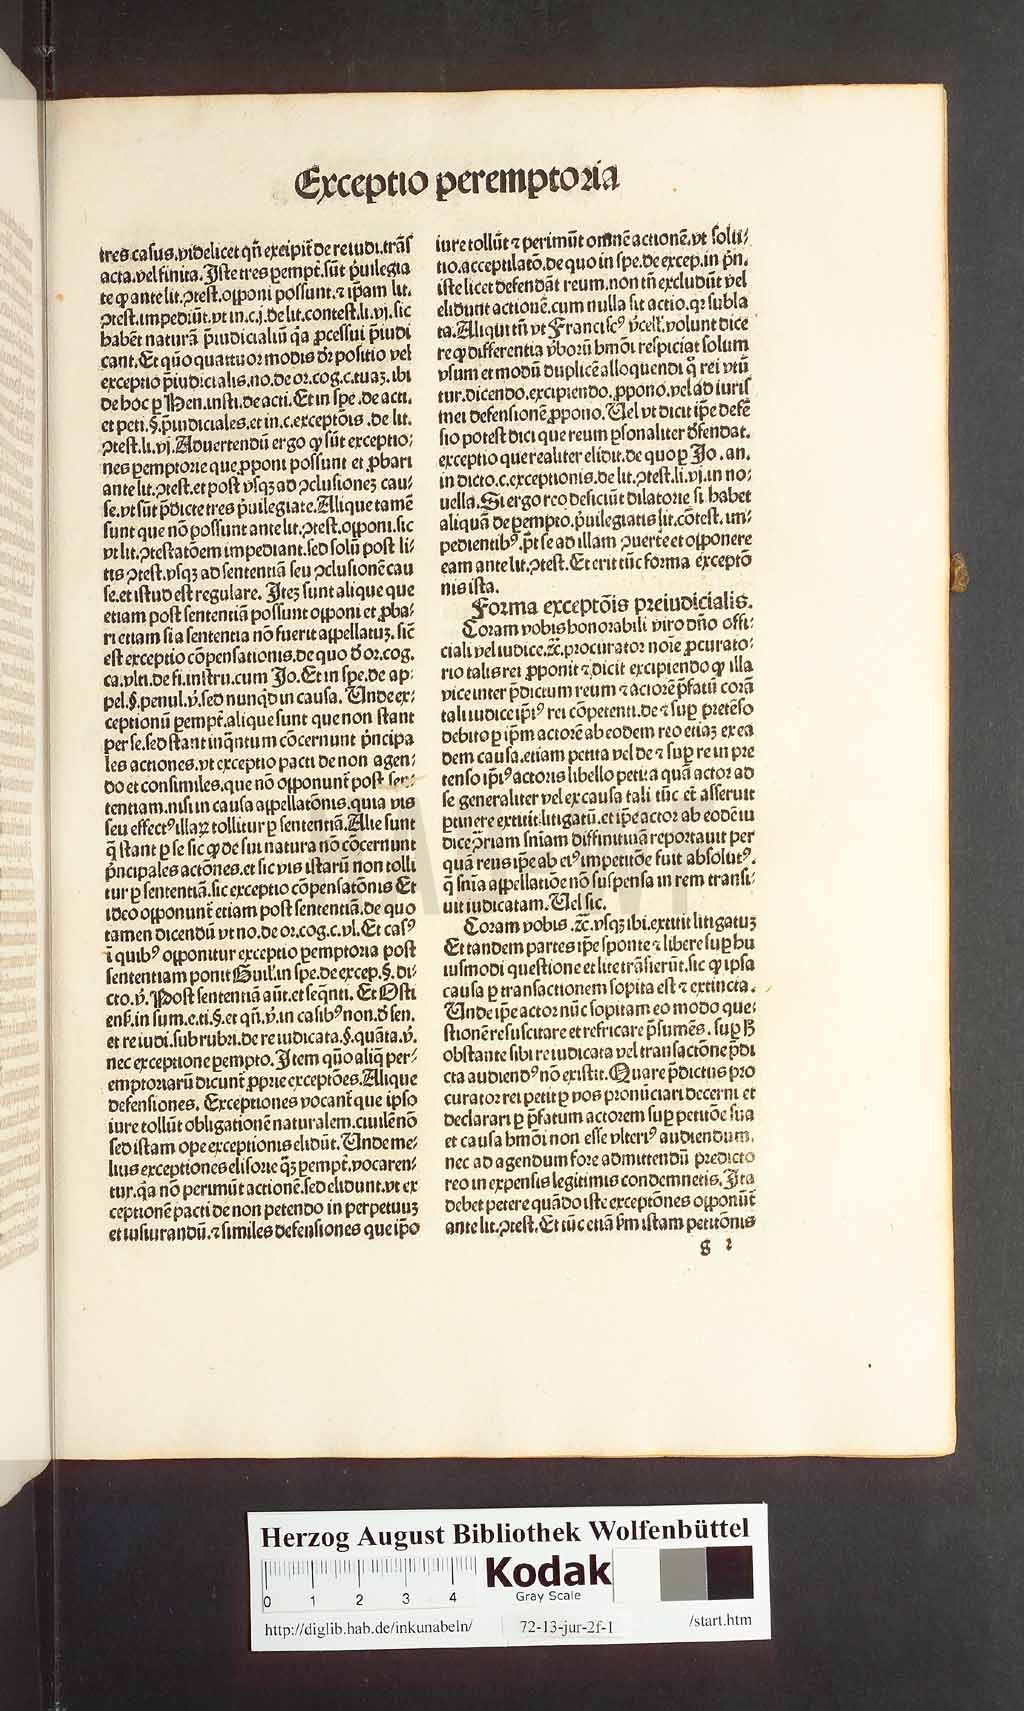 Exceptio peremptoria
tres casus.videlicet qñ excipit̃ de re iudi.trãs
acta.vel finita.Iste tres ꝑempt̃.sũt p̃uilegia
te ꝙ ante lit.ꝯtest.opponi possunt.⁊ ip̃am lit.
ꝯtest.impediũt.vt in.c.j.de lit.contest.li.vj.sic
habẽt naturã p̃iudicialiũ q̃a ꝓcessui p̃iudi
cant.Et quõ quattuor modis dr̃ positio vel
exceptio p̃iudicialis.no.de or.cog.c.tuaꝫ.ibi
de hoc ꝑ Hen.insti.de acti.Et in spe.de acti.
et peti.§.p̃iudiciales.et in.c.exceptõis.de lit.
ꝯtest.li.vj.Aduertendũ ergo ꝙ sũt exceptio⸗
nes ꝑemptorie que ꝓponi possunt et ꝓbari
ante lit.ꝯtest.et post vsqꝫ ad ꝯclusioneꝫ cau⸗
se.vt sũt p̃dicte tres p̃uilegiate.Alique tamẽ
sunt que nõ possunt ante lit.ꝯtest.opponi.sic
vt lit.ꝯtestatõem impediant.sed solũ post li⸗
tis ꝯtest.vsqꝫ ad sententiã seu ꝯclusionẽ cau
se.et istud est regulare. Iteꝫ sunt alique que
etiam post sententiã possunt opponi et ꝓba⸗
ri etiam si a sententia nõ fuerit appellatuꝫ.sic̃
est exceptio cõpensationis.de quo d̃ or.cog.
ca.vlti.de fi.instru.cum Io.Et in spe.de ap⸗
pel.§.penul.v̉.sed nunqd̃ in causa. Unde ex⸗
ceptionũ ꝑempt̃.alique sunt que non stant
per se.sed stant inq̃ntum cõcernunt p̃ncipa
les actiones.vt exceptio pacti de non agen⸗
do et consimiles.que nõ opponunt̃ post sen⸗
tentiam.nisi in causa appellatõnis.quia vis
seu effectꝰ illaꝝ tollitur ꝑ sententiã.Alie sunt
q̃ stant ꝑ se sic ꝙ de sui natura nõ cõcernunt
p̃ncipales actõnes.et sic vis istarũ non tolli
tur ꝑ sententiã.sic exceptio cõpensatõnis Et
ideo opponunt̃ etiam post sententiã.de quo
tamen dicendũ vt no.de or.cog.c.vl.Et casꝰ
ĩ quibꝰ opponitur exceptio ꝑemptoria post
sententiam ponit Guil̃.in spe.de excep.§.di⸗
cto.v̉.Post sententiã aũt.et seq̃nti. Et Osti
ens̃.in sum.e.ti.§.et qñ.v̉.in casibꝰ non.d̃ sen.
et re iudi.sub rubri.de re iudicata.§.quãta.v̉.
nec exceptione ꝑempto.Item quõ aliq̃ per⸗
emptoriarũ dicunt̃ ꝓprie exceptões.Alique
defensiones. Exceptiones vocant̃ que ipso
iure tollũt obligationẽ naturalem.ciuilẽ nõ
sed istam ope exceptionis elidũt. Unde me⸗
lius exceptiones elisorie q̃ꝫ ꝑempt̃.vocaren⸗
tur.q̃a nõ perimũt actionẽ.sed elidunt.vt ex
ceptionẽ pacti de non petendo in perpetuuꝫ
et iusiurandũ.⁊ similes defensiones que ip̃o
iure tollũt ⁊ perimũt omnẽ actionẽ.vt solu⸗
tio.acceptilatõ.de quo in spe.de excep.in p̃n.
iste licet defendãt reum.non tñ excludũt vel
elidunt actionẽ.cum nulla sit actio.qꝛ subla
ta.Aliqui tñ vt Franciscꝰ v̉cell̃.volunt dice
re ꝙ differentia v̉borũ hmõi respiciat solum
vsum et modũ duplicẽ alloquendi q̊ rei vtũ
tur.dicendo.excipiendo.ꝓpono.vel ad iuris
mei defensionẽ ꝓpono.Uel vt dicit ip̃e defẽ
sio potest dici que reum ꝑsonaliter d̃fendat.
exceptio que realiter elidit.de quo ꝑ Io.an.
in dicto.c.exceptionis.de lit.ꝯtest.li.vj.in no⸗
uella.Si ergo reo deficiũt dilatorie si habet
aliquã de ꝑempto.p̃uilegiatis lit.cõtest.im⸗
pedientibꝰ.p̃t se ad illam ꝯuerte et opponere
eam ante lit.ꝯtest. Et erit tũc forma exceptõ
nis ista.
Forma exceptõis preiudicialis.
Coram vobis honorabili viro dño offi⸗
ciali vel iudice.⁊c̃.procurator noĩe ꝓcurato⸗
rio talis rei ꝓponit ⁊ dicit excipiendo ꝙ illa
vice inter p̃dictum reum ⁊ actorẽ p̃fatũ corã
tali iudice ip̃iꝰ rei cõpetenti.de ⁊ suꝑ pretẽso
debito ꝑ ip̃m actorẽ ab eodem reo etiaꝫ ex ea
dem causa.etiam petita vel de ⁊ suꝑ re in pre
tenso ip̃iꝰ actoris libello petita quã actor ad
se generaliter vel ex causa tali tũc et̃ asseruit
ꝑtinere extitit.litigatũ.et ip̃e actor ab eodẽ iu
dice ꝯ̃riam sñiam diffinitiuã reportauit per
quã reus ip̃e ab eiꝰ impetitõe fuit absolutꝰ.
q̃ snĩa appellatiõe nõ suspensa in rem transi⸗
uit iudicatam. Uel sic.
Coram vobis.⁊c̃.vsqꝫ ibi.extitit litigatuꝫ
Et tandem partes ip̃e sponte ⁊ libere suꝑ hu
iusmodi questione et lite trãsierũt.sic ꝙ ipsa
causa ꝑ transactionem sopita est ⁊ extincta.
Unde ip̃e actor nũc sopitam eo modo que⸗
stionẽ resuscitare et refricare p̃sumẽs.suꝑ ꝩ
obstante sibi re iudicata vel transactõne p̃di
cta audiendꝰ nõ existit.Quare p̃dictus pro
curator rei petit ꝑ vos pronũciari decerni et
declarari ꝑ p̃fatum actorem suꝑ petitõe sua
et causa hmõi non esse vlteriꝰ audiendum.
nec ad agendum fore admittendũ predicto
reo in expensis legitimis condemnetis.Ita
debet petere quãdo iste exceptõnes opponũt̃
ante lit.ꝯtest. Et tũc etiã ẜm istam petitõnis
g 2
Herzog August Bibliothek Wolfenbüttel
0 1 2 3 4
Kodak
Gray Scale
http://diglib.hab.de/inkunabeln/ 72-13-jur-2f-1 /start.htm